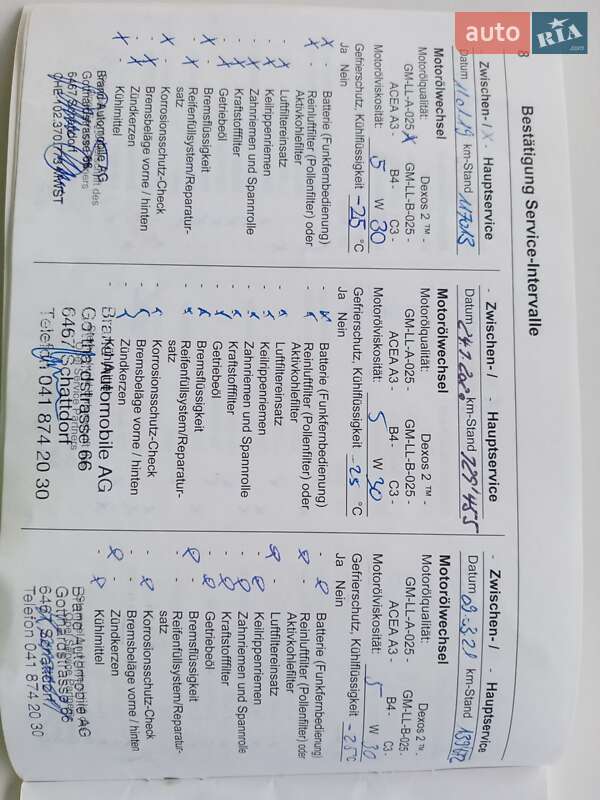 auto RIA .com
8
Bestätigung Service-Intervalle
Zwischen-/X- Hauptservice
Datum 11.01.19 km-Stand 117013
Motorölwechsel
Motorölqualität: Dexos 2 ™ -
GM-LL-A-025 X GM-LL-B-025 -
ACEA A3 - B4 - C3 -
Motorölviskosität: 5 W 30
Gefrierschutz, Kühlflüssigkeit -25 °C
Ja Nein
- X Batterie (Funkfernbedienung)
X - Reinluftfilter (Pollenfilter) oder
Aktivkohlefilter
- X Luftfiltereinsatz
- X Keilrippenriemen
- X Zahnriemen und Spannrolle
- X Kraftstofffilter
- X Getriebeöl
X - Bremsflüssigkeit
- X Reifenfüllsystem/Reparatur-
satz
X - Korrosionsschutz-Check
- X Bremsbeläge vorne / hinten
- X Zündkerzen
X - Kühlmittel
Brand Automobile AG
Gotthardstrasse 66
6467 Schattdorf
- Zwischen-/ - Hauptservice
Datum 24.1.2020 km-Stand 128'455
Motorölwechsel
Motorölqualität: Dexos 2 ™ -
GM-LL-A-025 - GM-LL-B-025 -
ACEA A3 - B4 - C3 -
Motorölviskosität: 5 W 30
Gefrierschutz, Kühlflüssigkeit -25 °C
Ja Nein
Batterie (Funkfernbedienung)
Reinluftfilter (Pollenfilter) oder
Aktivkohlefilter
Luftfiltereinsatz
Keilrippenriemen
Zahnriemen und Spannrolle
Kraftstofffilter
Getriebeöl
Bremsflüssigkeit
Reifenfüllsystem/Reparatur-
satz
Korrosionsschutz-Check
Bremsbeläge vorne / hinten
Zündkerzen
Kühlmittel
Brand Automobile AG
Gotthardstrasse 66
6467 Schattdorf
Telefon 041 874 20 30
- Zwischen-/ - Hauptservice
Datum 09.3.21 km-Stand
Motorölwechsel
Motorölqualität: Dexos 2 ™ -
GM-LL-A-025 - GM-LL-B-025 -
ACEA A3 - B4 - C3 -
Motorölviskosität: 5 W 30
Gefrierschutz, Kühlflüssigkeit -25 °C
Ja Nein
Batterie (Funkfernbedienung)
Reinluftfilter (Pollenfilter) oder
Aktivkohlefilter
Luftfiltereinsatz
Keilrippenriemen
Zahnriemen und Spannrolle
Kraftstofffilter
Getriebeöl
Bremsflüssigkeit
Reifenfüllsystem/Reparatur-
satz
Korrosionsschutz-Check
Bremsbeläge vorne / hinten
Zündkerzen
Kühlmittel
Brand Automobile AG
Gotthardstrasse 66
6467 Schattdorf
Telefon 041 874 20 30